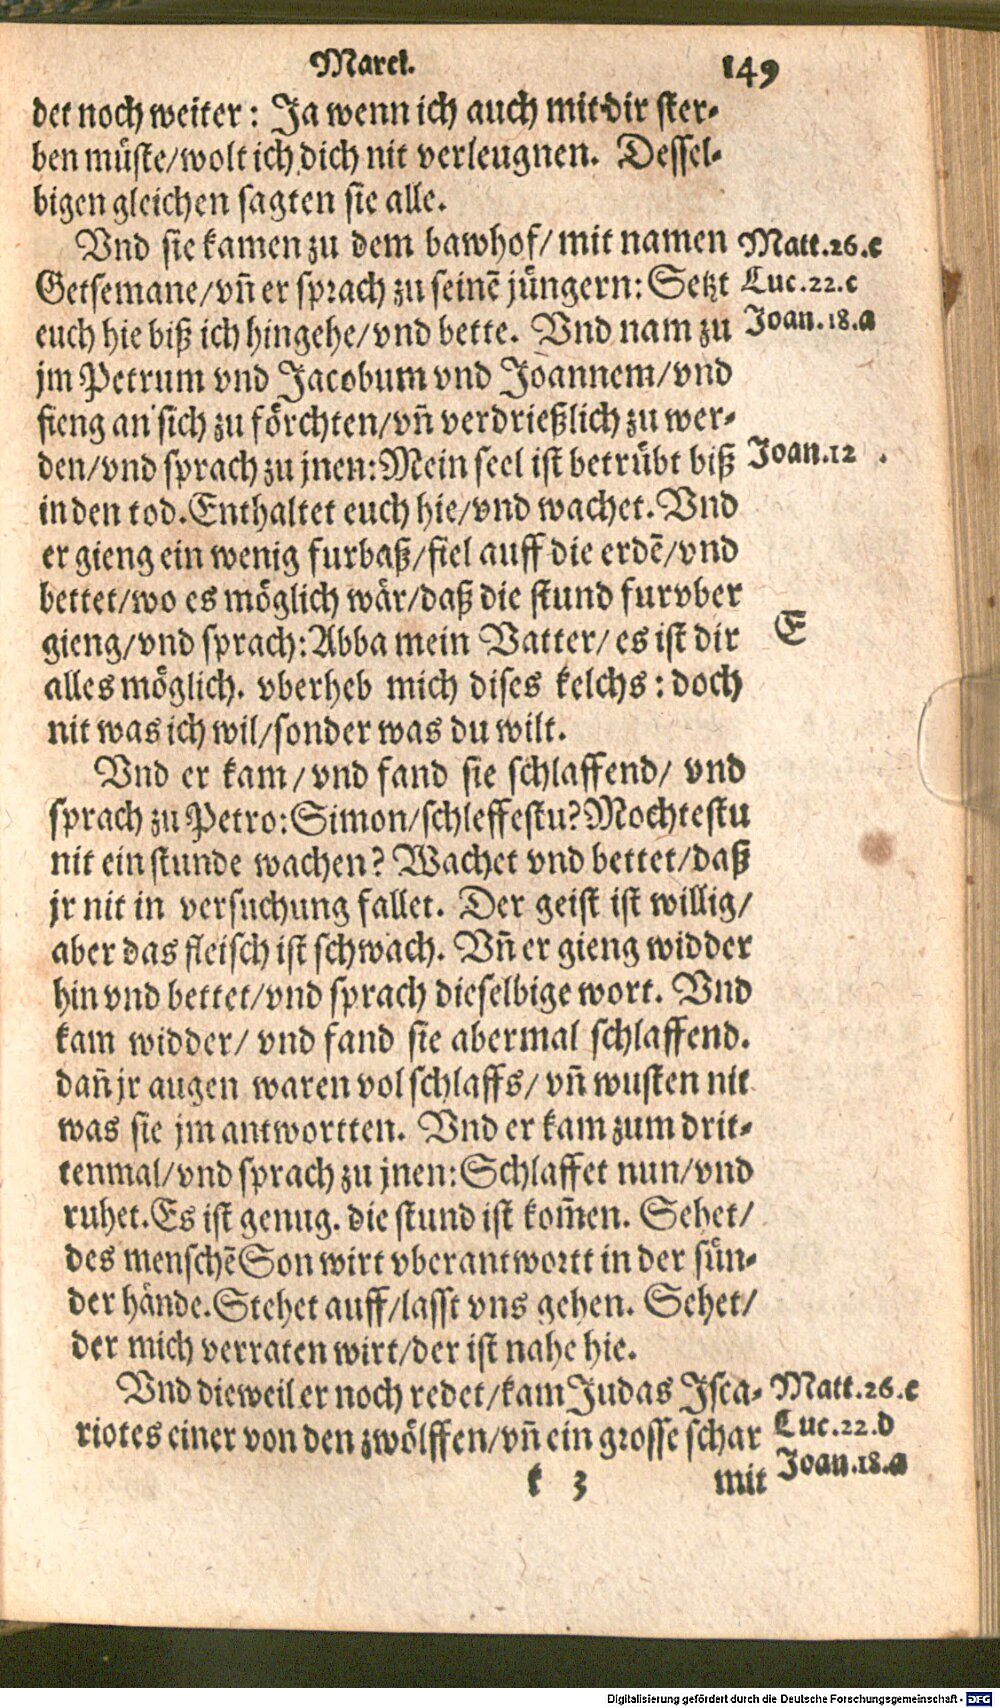 Marci. 149
det noch weiter: Ja wenn ich auch mit dir ster-
ben müste/wolt ich dich nit verleugnen. Dessel-
bigen gleichen sagten sie alle.
Vnd sie kamen zu dem bawhof/mit namen
Getsemane/vñ er sprach zu seinē jüngern: Setzt
euch hie biß ich hingehe/vnd bette. Vnd nam zu
jm Petrum vnd Jacobum vnd Joannem/vnd
fieng an sich zu förchten/vñ verdrießlich zu wer-
den/vnd sprach zu jnen: Mein seel ist betrübt biß
in den tod. Enthaltet euch hie/vnd wachet. Vnd
er gieng ein wenig furbaß/fiel auff die erdē/vnd
bettet/wo es möglich wär/daß die stund furvber
gieng/vnd sprach: Abba mein Vatter/es ist dir
alles möglich. vberheb mich dises kelchs: doch
nit was ich wil/sonder was du wilt.
Vnd er kam/vnd fand sie schlaffend/vnd
sprach zu Petro: Simon/schleffestu? Mochtestu
nit ein stunde wachen? Wachet vnd bettet/daß
jr nit in versuchung fallet. Der geist ist willig/
aber das fleisch ist schwach. Vñ er gieng widder
hin vnd bettet/vnd sprach dieselbige wort. Vnd
kam widder/vnd fand sie abermal schlaffend.
dañ jr augen waren vol schlaffs/vñ wusten nit
was sie jm antwortten. Vnd er kam zum drit-
tenmal/vnd sprach zu jnen: Schlaffet nun/vnd
ruhet. Es ist genug. die stund ist kom̄en. Sehet/
des menschē Son wirt vberantwortt in der sün-
der hände. Stehet auff/lasst vns gehen. Sehet/
der mich verraten wirt/der ist nahe hie.
Vnd dieweil er noch redet/kam Judas Isca-
riotes einer von den zwölffen/vñ ein grosse schar
k 3 mit
Matt.26.c
Luc.22.c
Joan.18.a
Joan.12 .
E
Matt.26.e
Luc.22.d
Joan.18.a
Digitalisierung gefördert durch die Deutsche Forschungsgemeinschaft - DFG